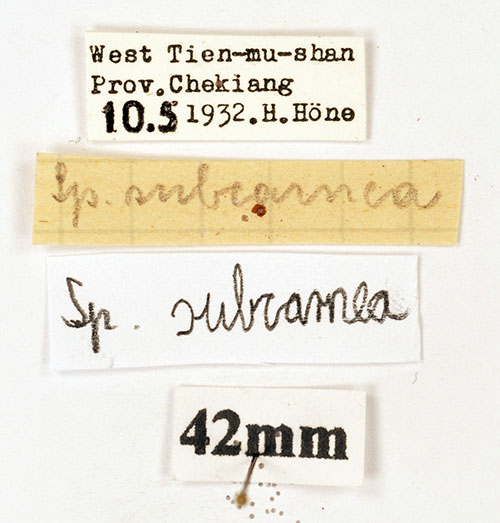 West Tien-mu-shan
Prov.Chekiang
10.5 1932.H.Höne
Sp. subcarnea
Sp. subcarnea
42mm